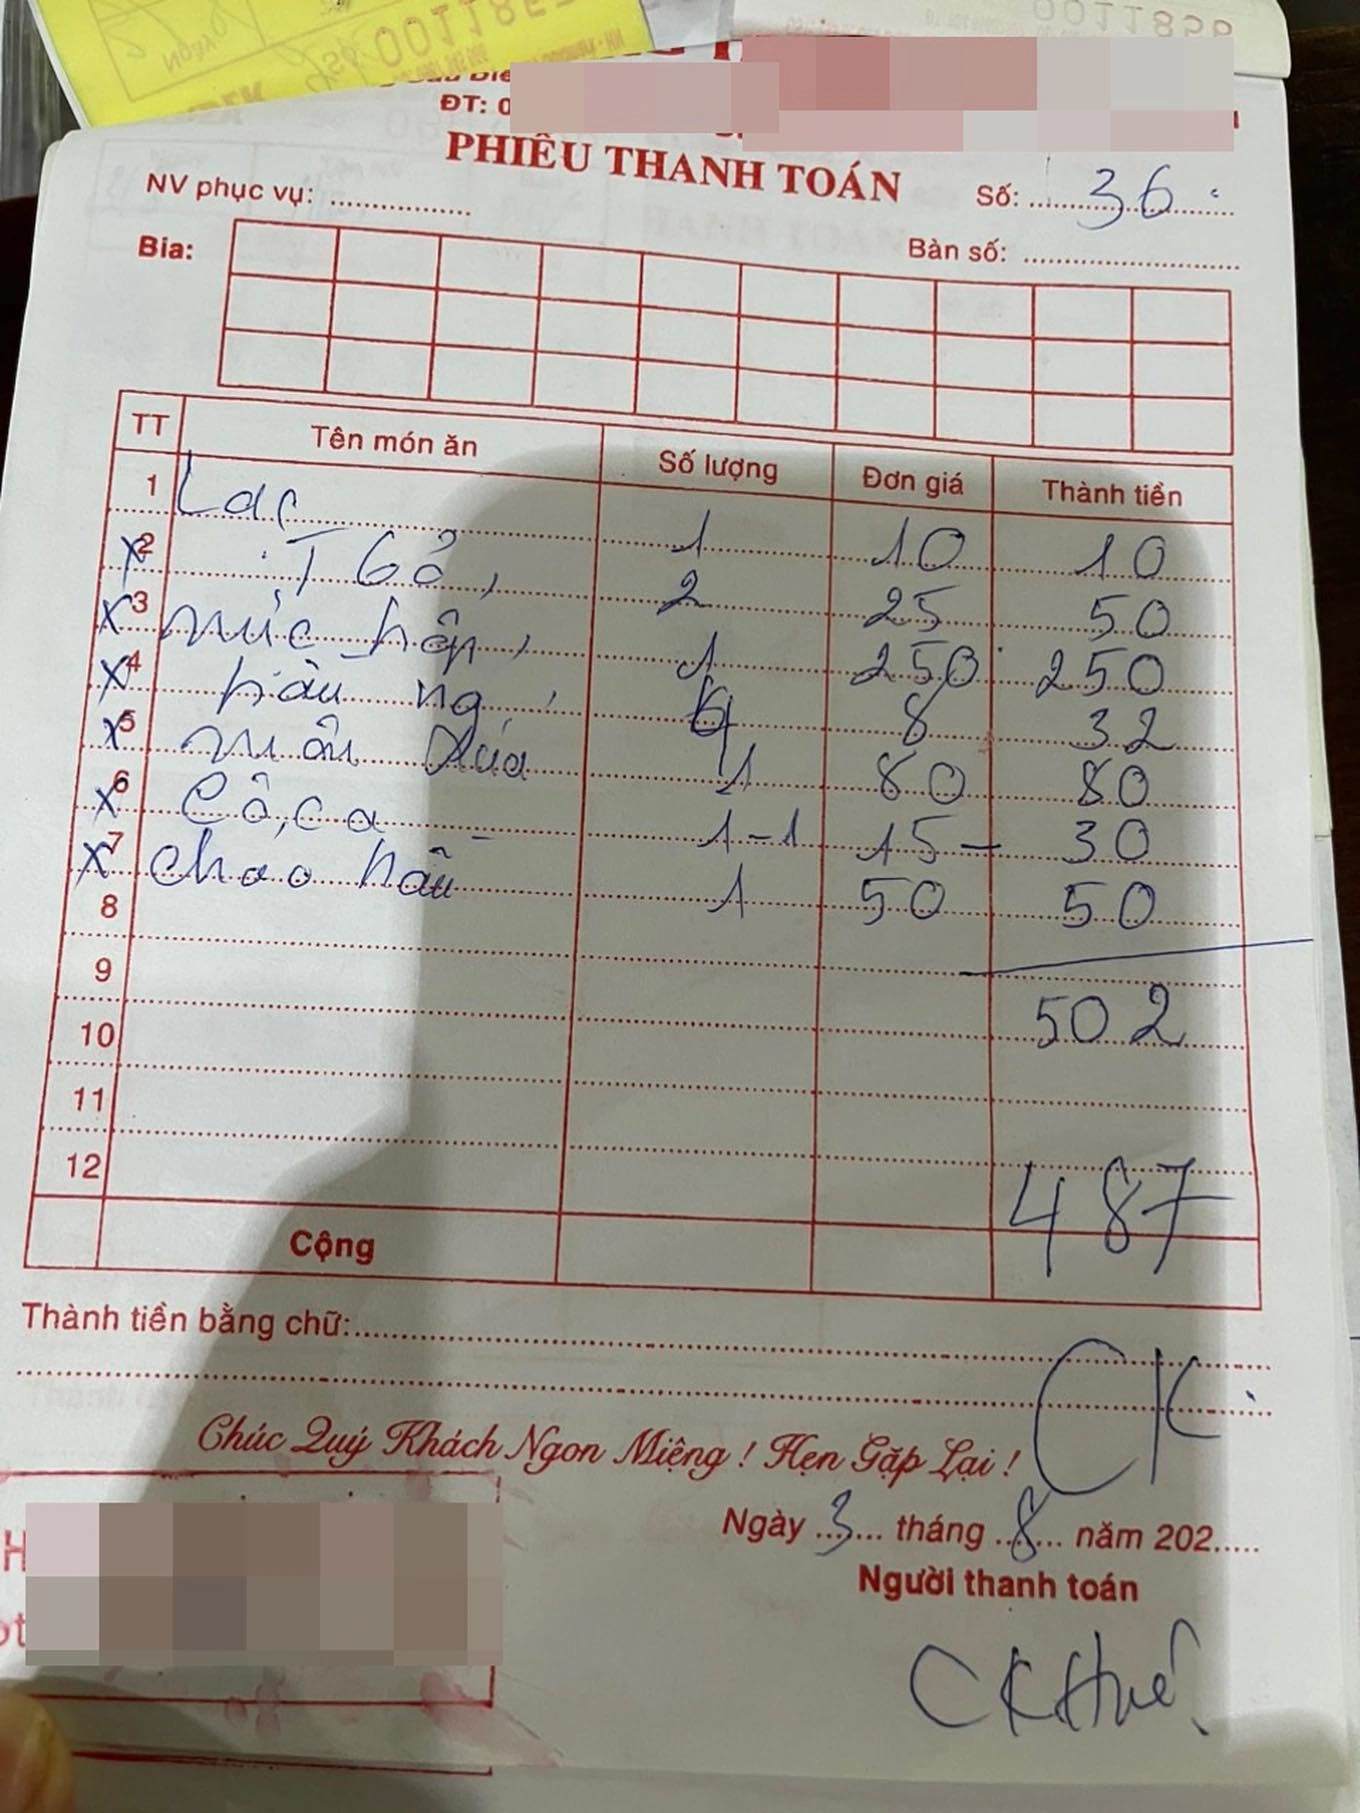 0011857
Ngày
Số
0011856
ĐT: 0
PHIẾU THANH TOÁN
NV phục vụ: ................ Số: 36
Bia: Bàn số: ..........................
TT Tên món ăn Số lượng Đơn giá Thành tiền
1 Lạc 1 10 10
x2 T Gỏ, 2 25 50
x3 mực hấp, 1 250 250
x4 hàu ng, 4 8 32
x5 1 80 80
x6 Cô, ca 1-1 15 - 30
x7 cháo hàu 1 50 50
8
9 502
10
11
12 487
Cộng
Thành tiền bằng chữ:
CK
Chúc Quý Khách Ngon Miệng ! Hẹn Gặp Lại !
Ngày 3 tháng 8 năm 202.....
Người thanh toán
CK Huế